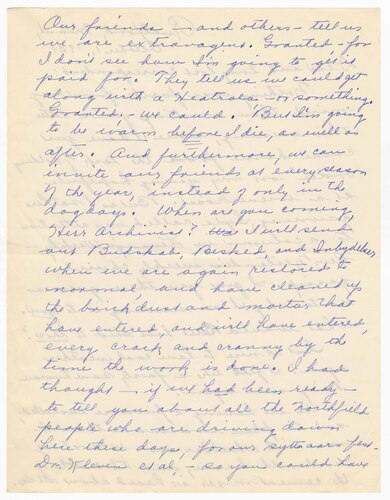 Our friends — and others — tell us
we are extravagent. Granted — for
I don't see how I'm going to get it
paid for. They tell us we could get
along with a Heatrola — or something.
Granted, — we could. But I'm going
to be warm before I die, as well as
after. And furthermore, we can
invite our friends at every season
of the year, instead of only in the
dogdays. When are you coming,
Herr Archivist? Was I will send
out Budskab, Besked, and Inbydelser
when we are again restored to
normal, and have cleaned up
the brick dust and mortar that
have entered, and will have entered,
every crack and cranny by the
time the work is done. I had
thought — if we had been ready —
to tell you about all the Northfield
people who are driving down
here these days for our syttaars fest —
Dr. Kleven et al, — so you could have